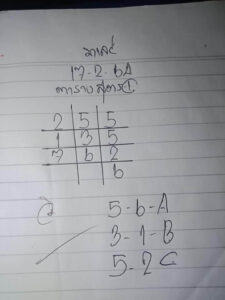 17.2.6A
ตารางสูตร①
2 5 5
1 3 5
7 6 2
6
5-6-A
3-1-B
5-2 C